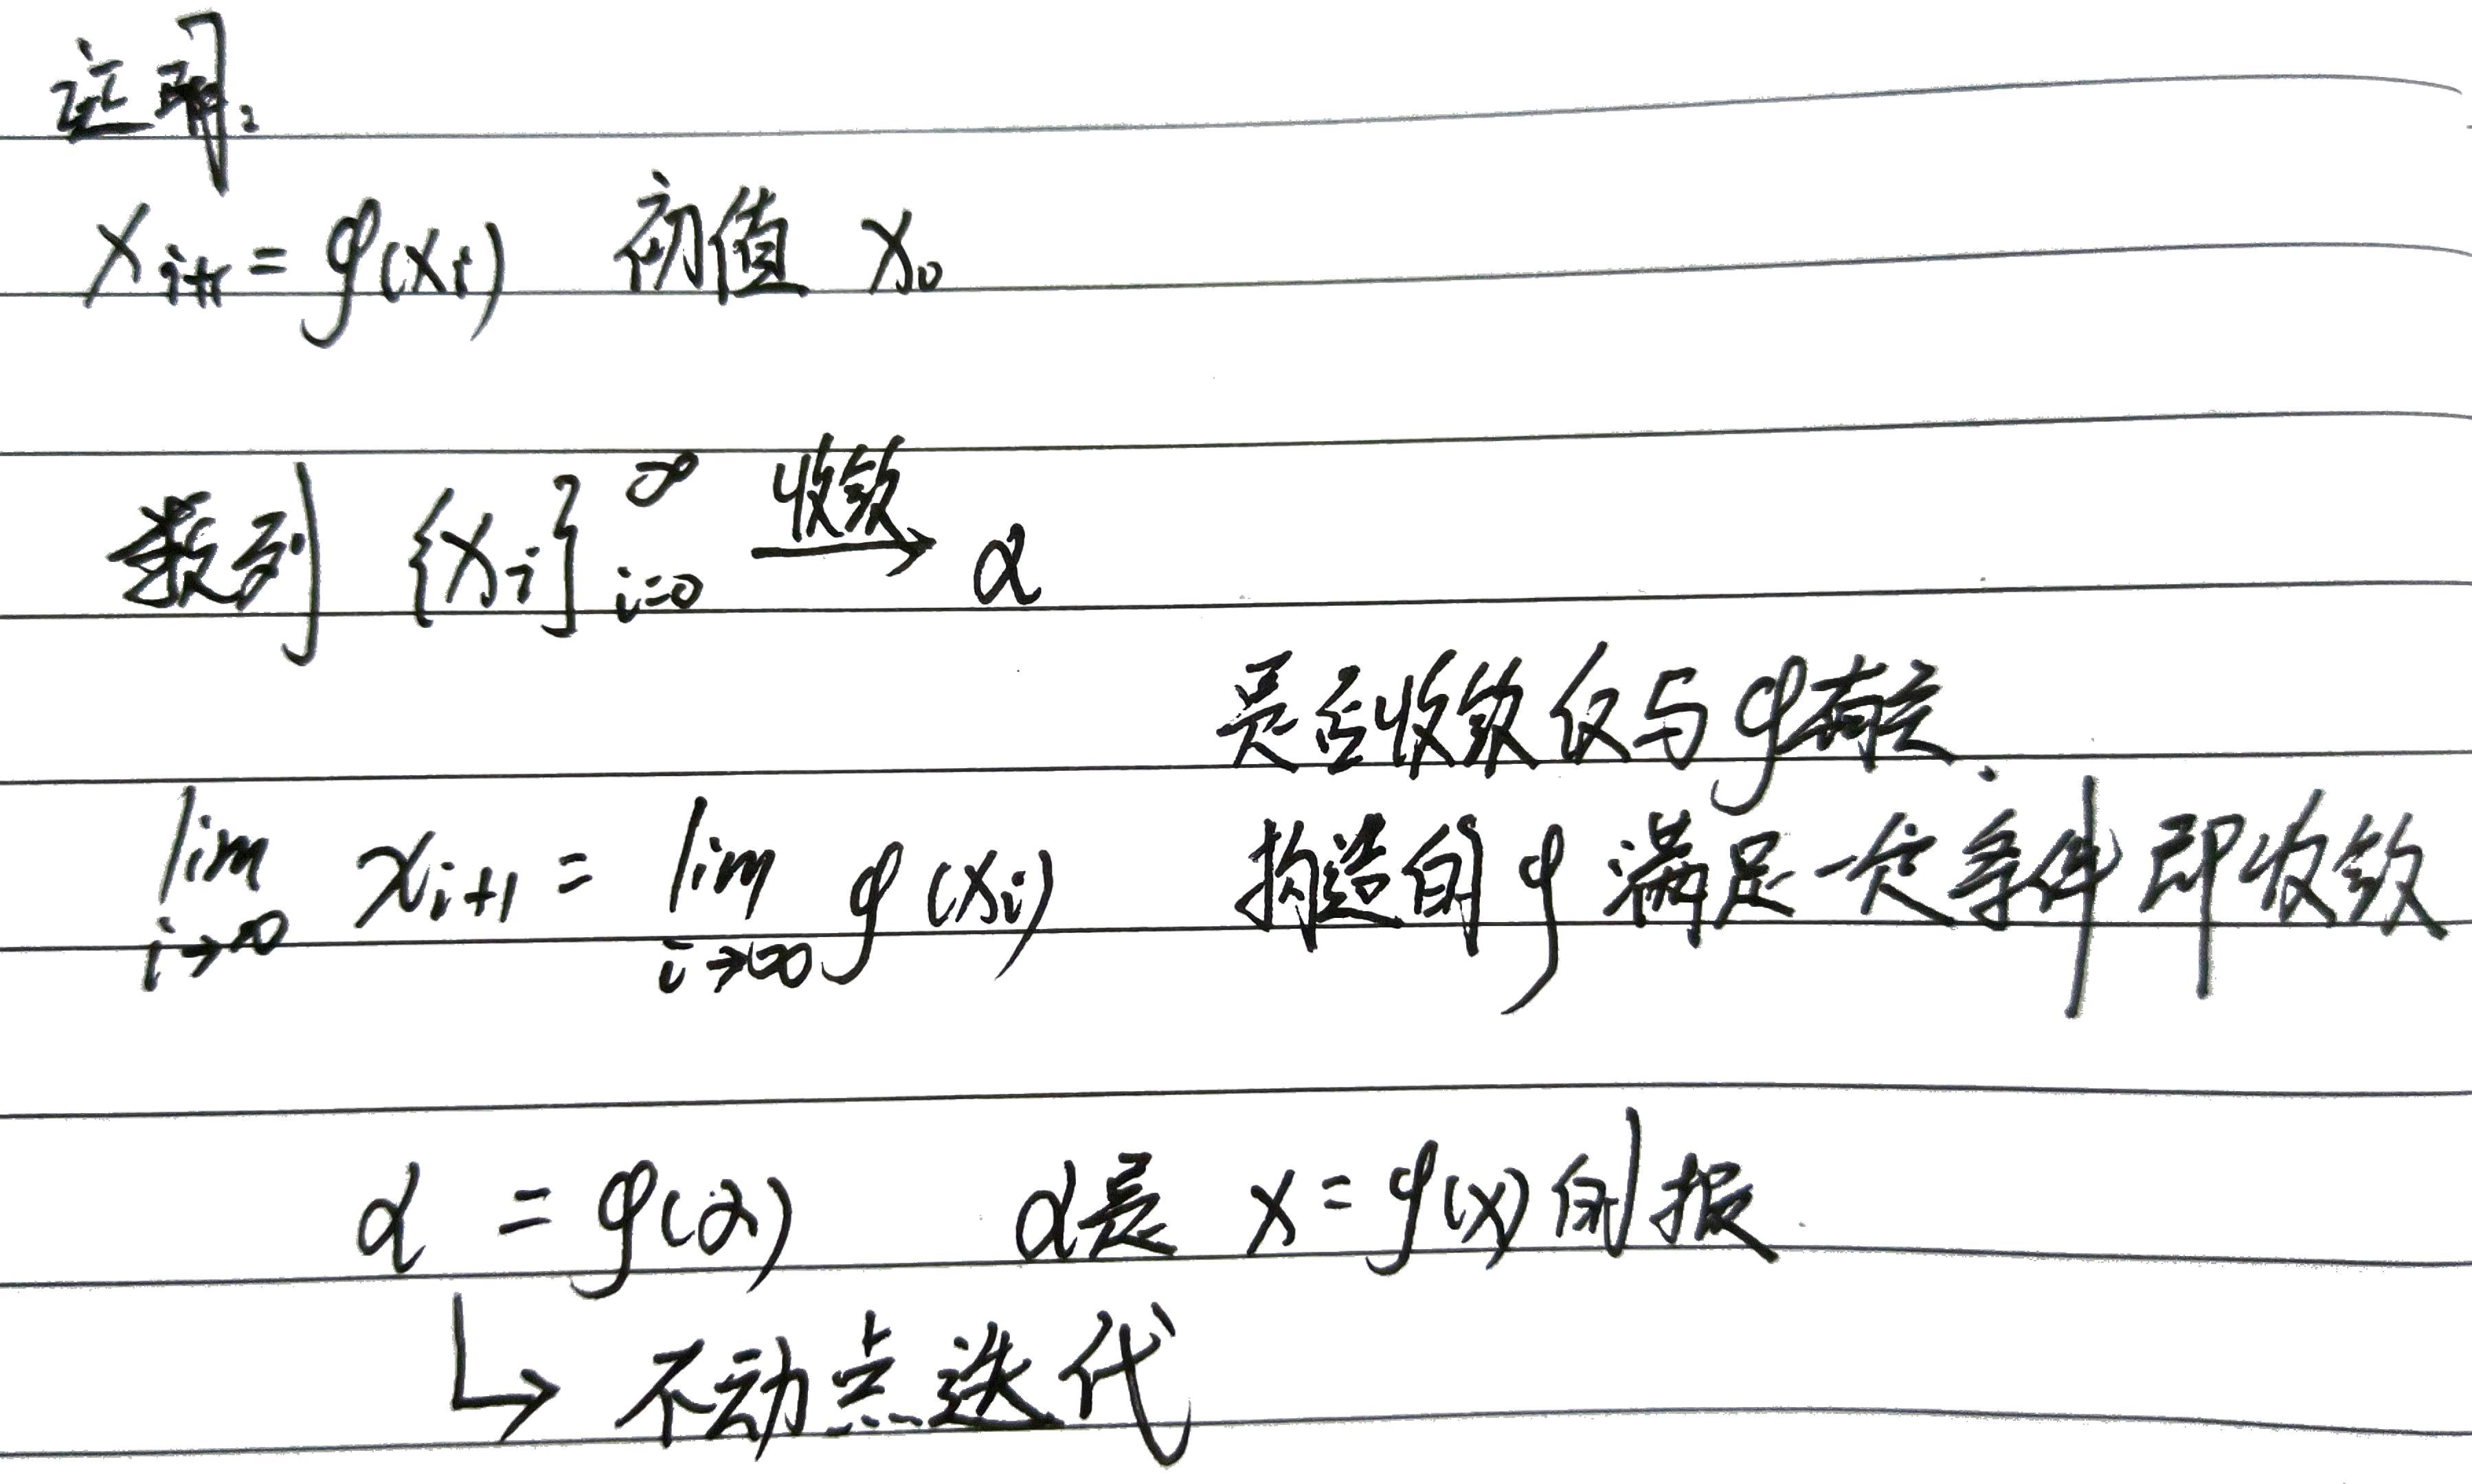 证明:
x_{i+1} = φ(x_i) 初值 x_0
数列 {x_i}_{i=0}^∞ —收敛→ α
是否收敛仅与φ有关.
lim_{i→∞} x_{i+1} = lim_{i→∞} φ(x_i) 构造的φ满足一定条件即收敛
α = φ(α) α是 x = φ(x) 的根.
↳ 不动点迭代